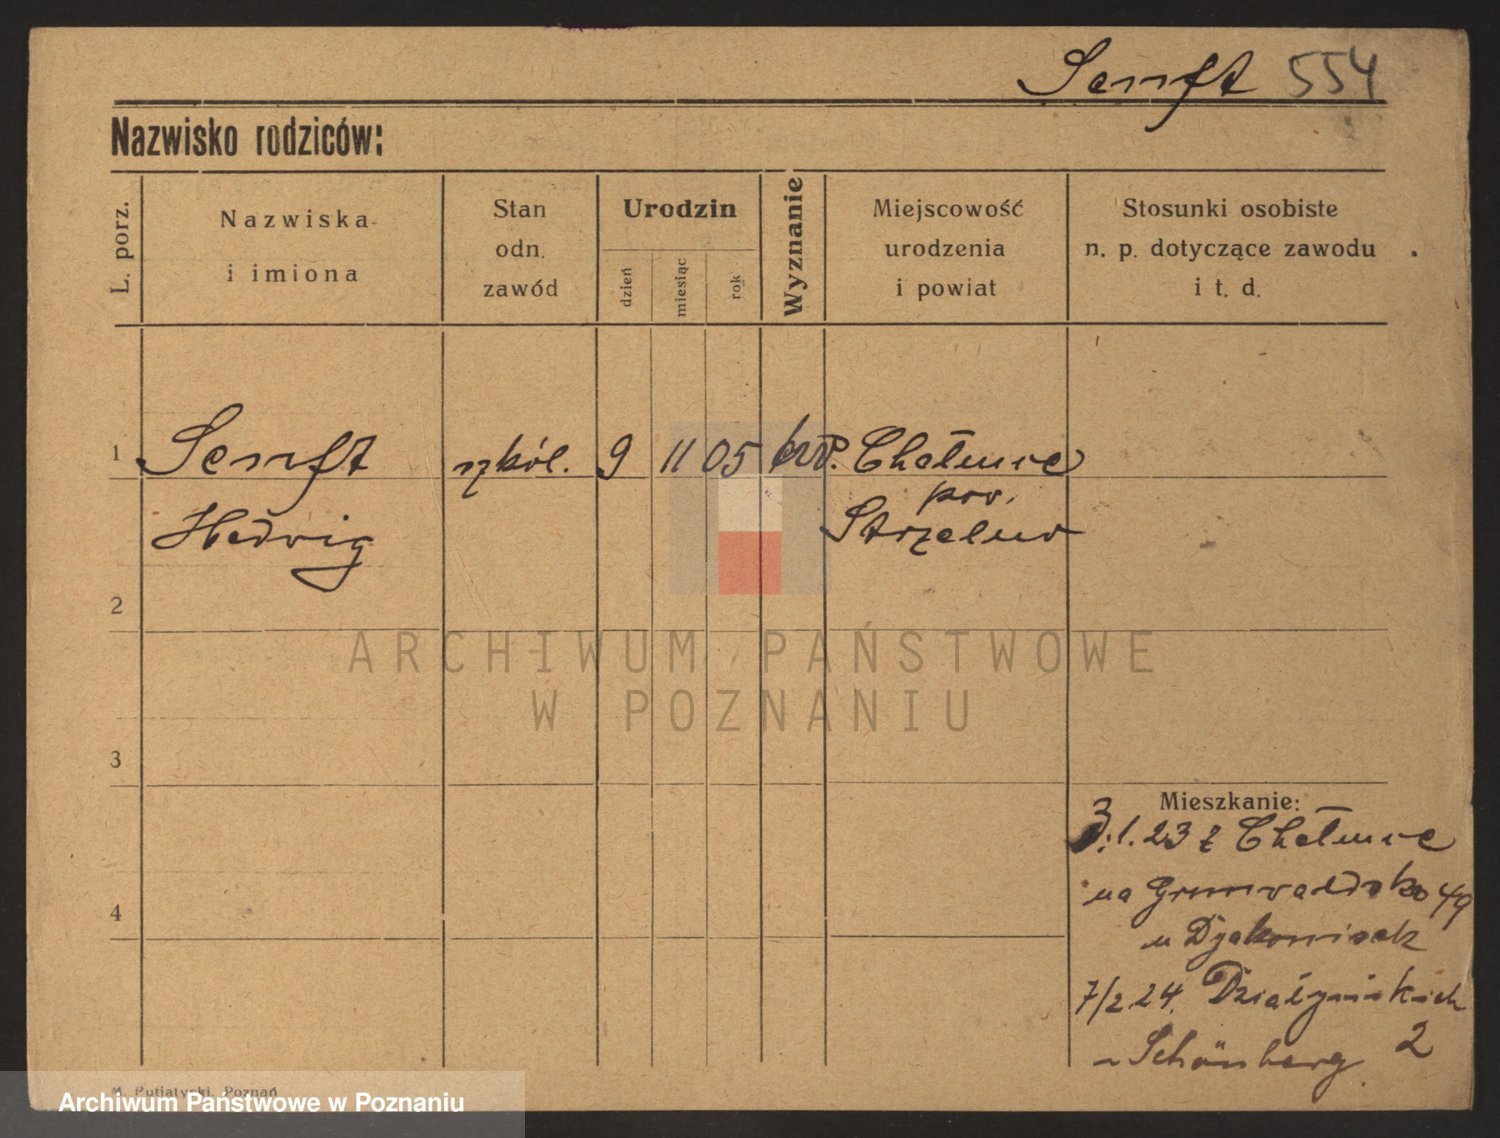 Senft 554
Nazwisko rodziców:
L. porz.
Nazwiska
i imiona
Stan
odn.
zawód
Urodzin
dzień
miesiąc
rok
Wyznanie
Miejscowość
urodzenia
i powiat
Stosunki osobiste
n. p. dotyczące zawodu
i t. d.
1 Senft 9 11 05 Chełmce
pow.
Hedwig Strzelno
2
ARCHIWUM PAŃSTWOWE
W POZNANIU
3
Mieszkanie:
3.1.23 z Chełmce
4
na Grunwaldska 49
u Dyakonisek
7/2 24. Działyńskich
Schönberg 2
M. Putiatycki, Poznań
Archiwum Państwowe w Poznaniu